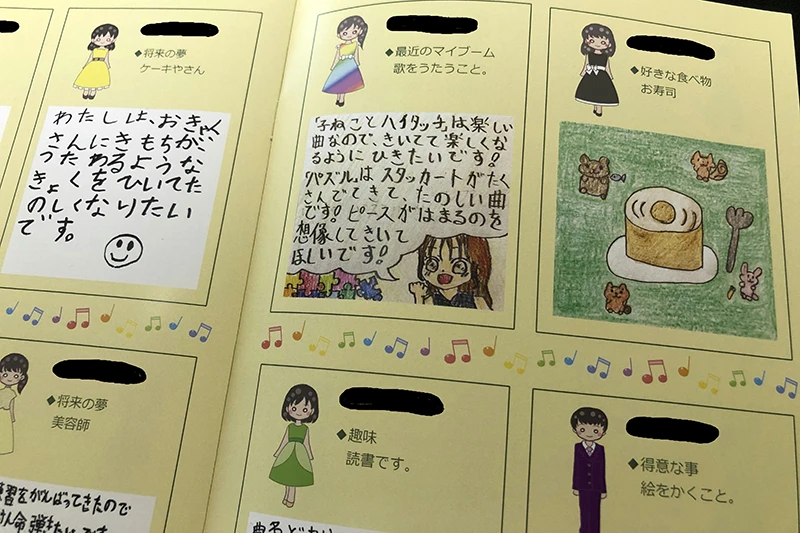 ◆将来の夢
ケーキやさん
わたしは、おきゃく
さんにきもちが、
つたわるような
きょくをひいてた
のしくなりたい
です。
◆最近のマイブーム
歌をうたうこと。
「子ねことハイタッチ」は楽しい
曲なので、きいてて楽しくな
るようにひきたいです!
「パズル」はスタッカートがたく
さんでてきて、たのしい曲
です!ピースがはまるのを
想像してきいて
ほしいです!
◆好きな食べ物
お寿司
◆将来の夢
美容師
習をがんばってきたので
◆趣味
読書です。
◆得意な事
絵をかくこと。